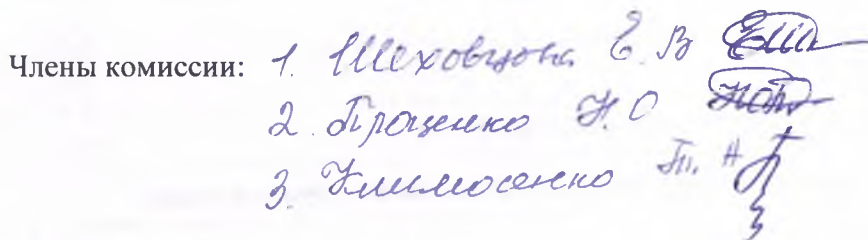 Члены комиссии: 1. Шеховцова Е. В
2. Проценко Н. О
3. Климосенко Т. А